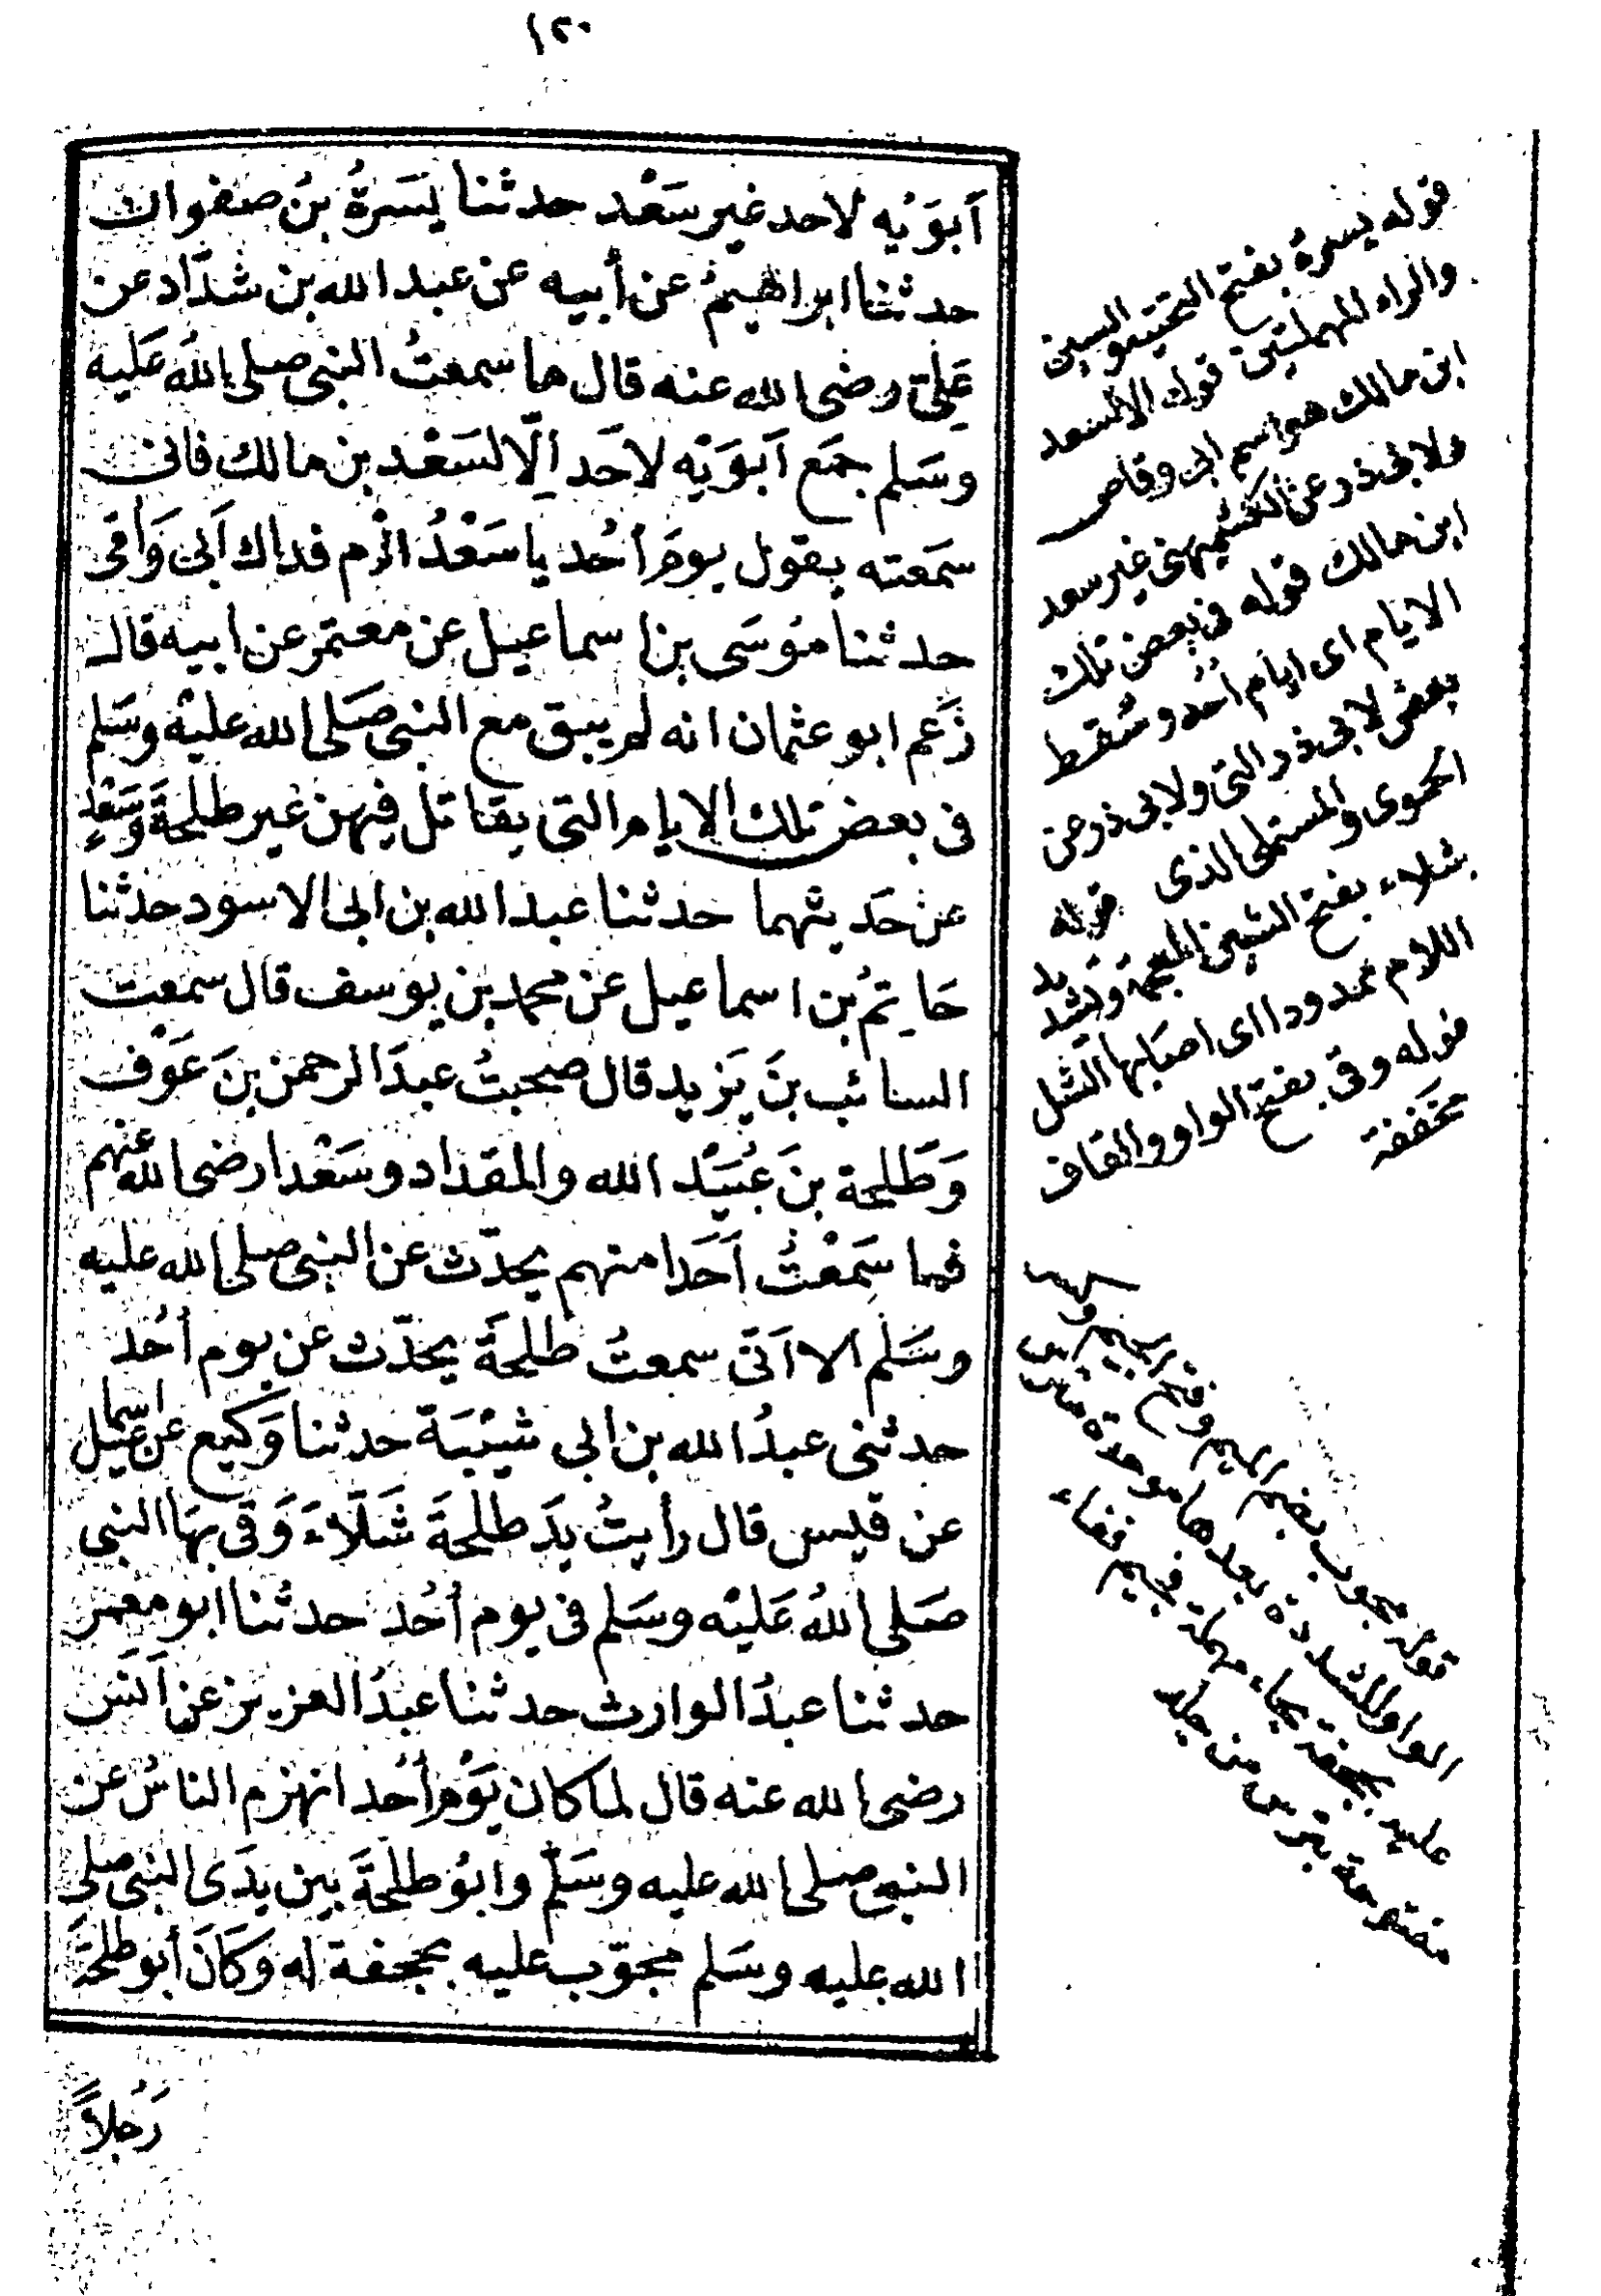 ١٢٠
أبَوَيْه لاحد غير سَعْد حدثنا يَسَرةُ بنُ صفوان
حدثنا ابراهيمُ عن أبيه عن عبد الله بن شدّاد عن
عَلِىّ رضى الله عنه قال ما سمعتُ النبى صلى اللهُ عَليه
وسَلم جمَع أبوَيْه لأحَد إلّا لسَعْد بن مالك فانى
سمَعته يقول يومَ أُحُد يا سَعْدُ ارْم فداك أَبى وَأُمّى
حدثنا موُسَى بن اسماعيل عن معتمر عن ابيه قال
زَعَم ابو عثمان انه لم يبق مع النبى صَلى الله عليْه وسَلم
فى بعض تلك الايام التى يقاتل فيهن غير طلحةَ وسَعْدٍ
عن حَديثهما حدثنا عبد الله بن ابى الاسود حدثنا
حَاتِمُ بن اسماعيل عن محمد بن يوسف قال سمعت
السائب بنَ يَزيد قال صحبتُ عبدَ الرحمن بنَ عَوْف
وَطَلحة بنَ عُبَيْد الله والمقداد وسَعْدا رضى الله عنهم
فما سَمِعْتُ أحَدا منهم يحدّث عن النبى صلى الله عليه
وسَلم الا أنّى سمعتُ طلحةَ يحدّث عن يوم أُحُد
حدثنى عبدُ الله بن ابى شيْبَة حدثنا وَكيع عن اسماعيل
عن قيس قال رأيتُ يدَ طلحةَ شَلّاءَ وَقَى بهَا النبى
صَلى اللهُ عَليْه وسَلم فى يوم أُحُد حدثنا ابو معمر
حدثنا عبدُ الوارث حدثنا عبدُ العزيز عن أنَس
رضى الله عنه قال لما كان يَوْم أُحُد انهزم الناسُ عن
النبى صلى الله عليه وسَلم وابوُ طلحةَ بين يدَى النبى صلى
الله عليه وسَلم مجوّب عليه بحجفة له وَكانَ أبو طلحَة
رَجُلاً
قوله يسرة بفتح التحتية والسين
والراء المهملتين قوله الا لسعد
ابن مالك هو اسم ابى وقاص
ولابى ذر عن الكشميهنى غير سعد
ابن مالك قوله فى بعض تلك
الايام اى ايام أُحُد وسُقط
بعض لابى ذر التى ولابى ذر عن
الحموى والمستملى الذى قوله
شلاء بفتح الشين المعجمة وتشديد
اللام ممدودا اى اصابها الشلل
قوله وقى بفتح الواو والقاف
مخففة
قوله مجوب بضم الميم وفتح الجيم وكسر
الواو المشددة بعدها موحدة
عليه بحجفة بحاء مهملة فجيم ففاء
مفتوحة بترس من جلد